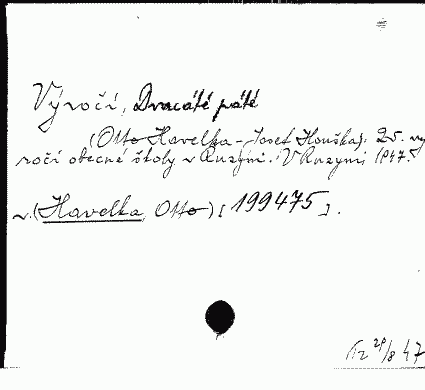 Výročí, Dvacáté páté
(Otto Havelka - Josef Houška): 25. vý
ročí obecné školy v Ruzyni. V Ruzyni 1947.
v. (Havelka, Otto) [199475].
29/8 47